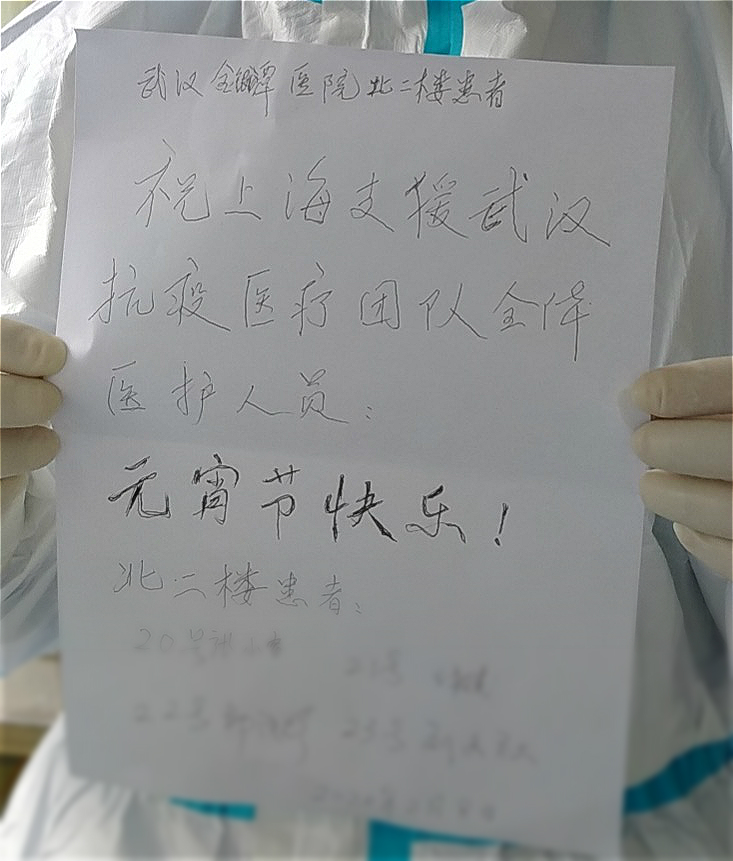 武汉金银潭医院北二楼患者
祝上海支援武汉
抗疫医疗团队全体
医护人员:
元宵节快乐!
北二楼患者:
20号
21号
22号
23号